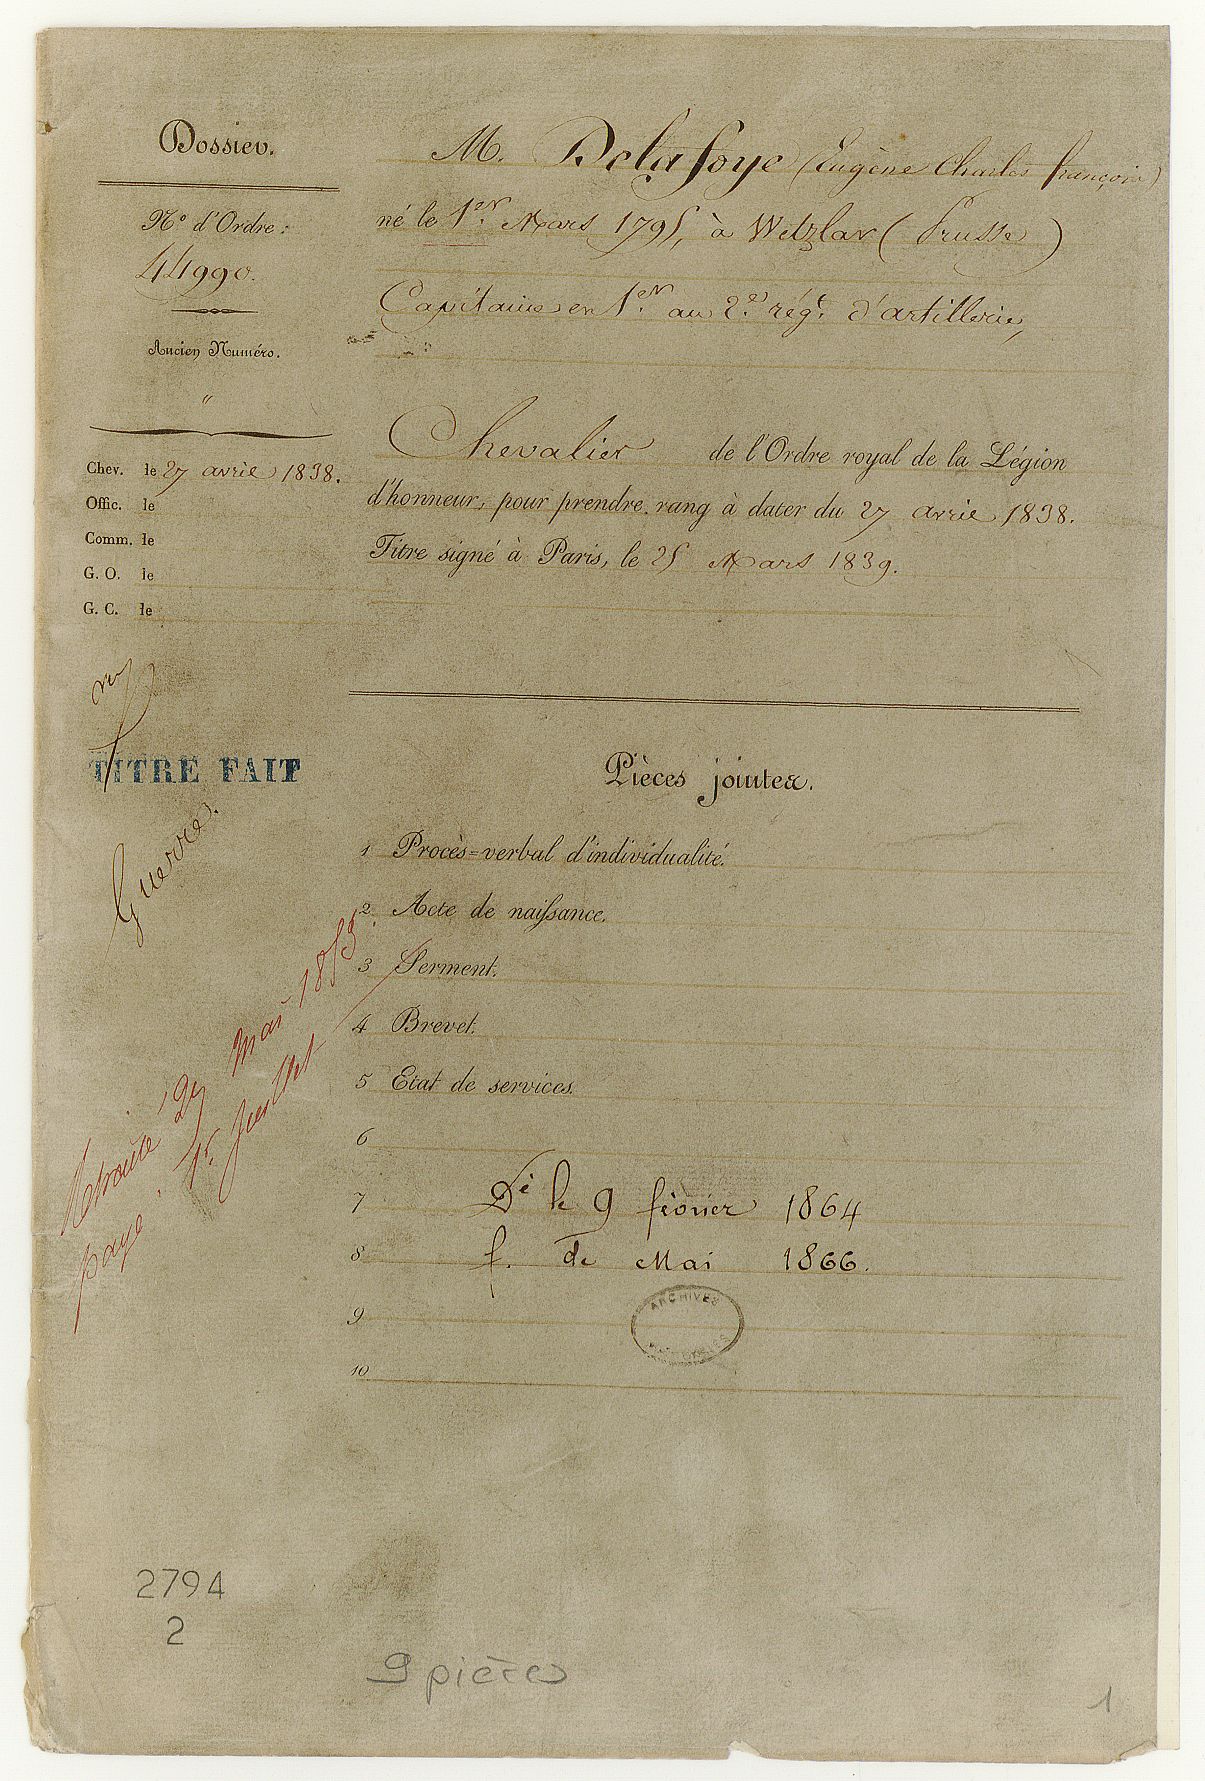 Dossier.
N° d'Ordre:
44990.
Ancien Numéro.
"
Chev. le 27 avril 1838.
Offic. le
Comm. le
G. O. le
G. C. le
TITRE FAIT
Guerre.
Retraite 27 Mai 1853.
payé 1er Juillet
M. Delafoye (Eugène Charles françois)
né le 1er Mars 1795, à Wetzlar (Prusse)
Capitaine en 1er au 2e régt d'artillerie,
Chevalier de l'Ordre royal de la Légion
d'honneur, pour prendre rang à dater du 27 avril 1838.
Titre signé à Paris, le 25 Mars 1839.
Pièces jointes.
1 Procès=verbal d'individualité.
2 Acte de naissance.
3 Serment.
4 Brevet.
5 Etat de services.
6
7 Dé le 9 février 1864
8 f. de Mai 1866.
9
ARCHIVES
10
2794
2
9 pièces
1